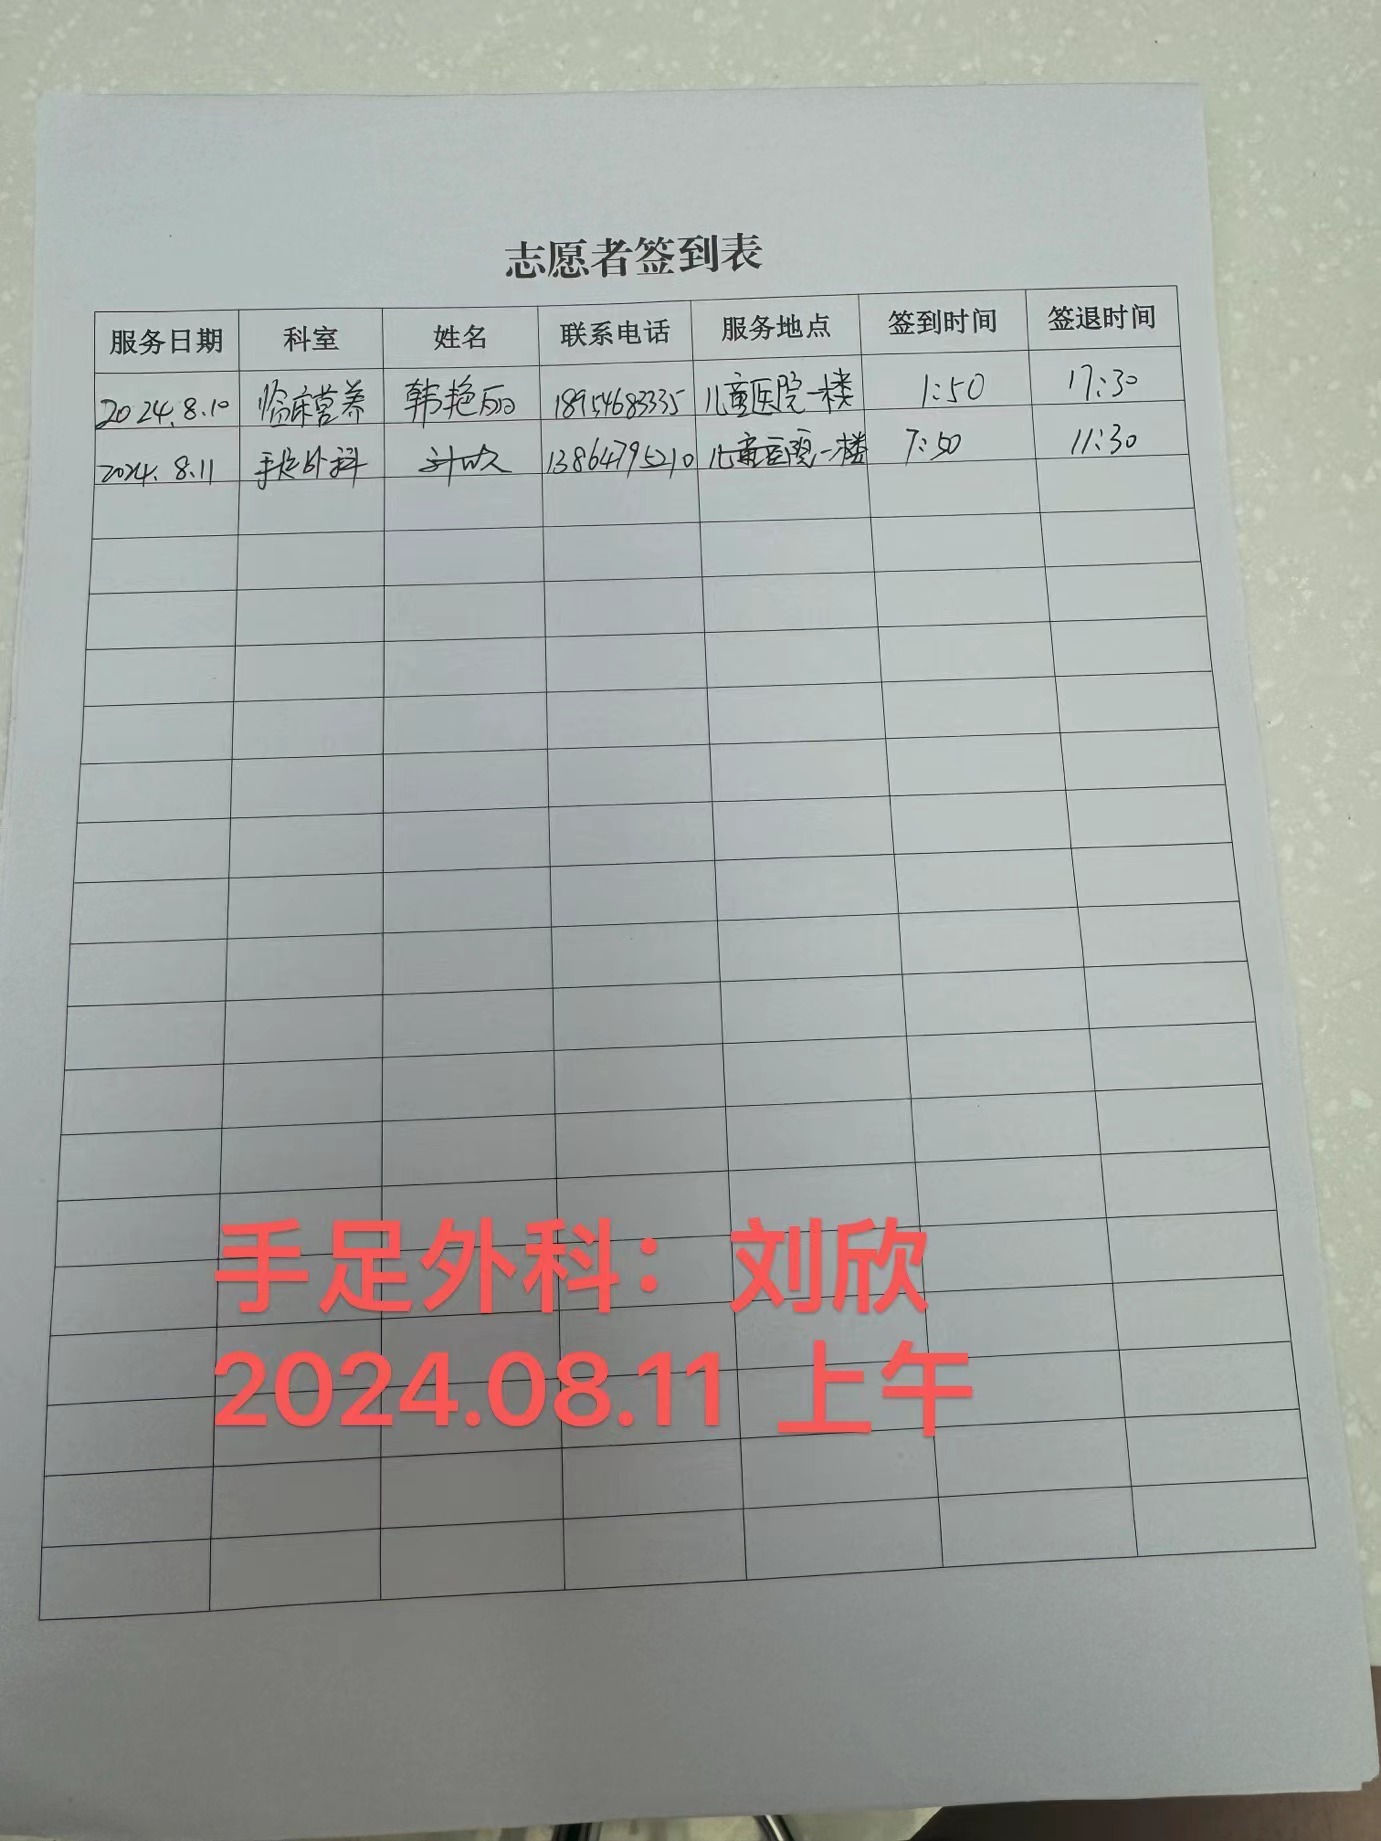 志愿者签到表
服务日期 科室 姓名 联系电话 服务地点 签到时间 签退时间
2024.8.10 临床营养 韩艳丽 18954683335 儿童医院一楼 1:50 17:30
2024.8.11 手足外科 刘欣 13864795210 儿童医院一楼 7:50 11:30
手足外科：刘欣
2024.08.11 上午